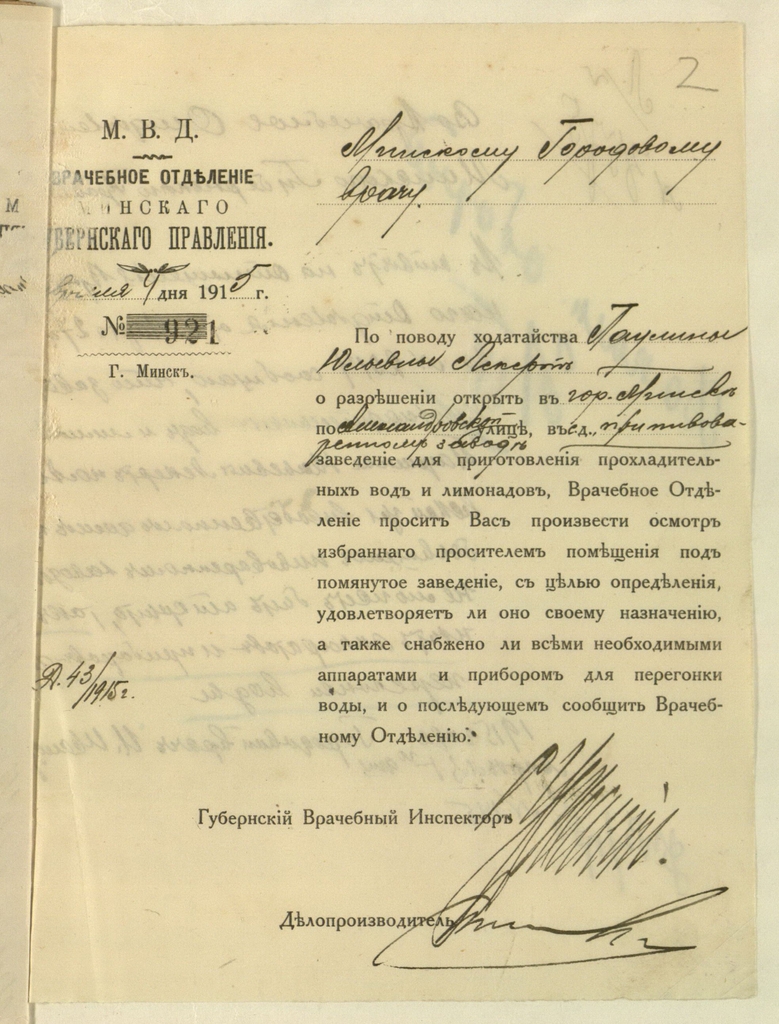 2
М. В. Д.
ВРАЧЕБНОЕ ОТДѢЛЕНІЕ
МИНСКАГО
ГУБЕРНСКАГО ПРАВЛЕНІЯ.
4 дня 1915 г.
№ 921
Г. Минскъ.
Минскому Городовому
врачу.
По поводу ходатайства Паулины
Юльевны Лекертъ
о разрѣшеніи открыть въ гор. Минскѣ
по Александровской улицѣ, въ д., при пивова-
ренномъ заводѣ
заведеніе для приготовленія прохладитель-
ныхъ водъ и лимонадовъ, Врачебное Отдѣ-
леніе проситъ Васъ произвести осмотръ
избраннаго просителемъ помѣщенія подъ
помянутое заведеніе, съ цѣлью опредѣленія,
удовлетворяетъ ли оно своему назначенію,
а также снабжено ли всѣми необходимыми
аппаратами и приборомъ для перегонки
воды, и о послѣдующемъ сообщить Врачеб-
ному Отдѣленію.
Д. 43/1915 г.
Губернскій Врачебный Инспекторъ
Дѣлопроизводитель